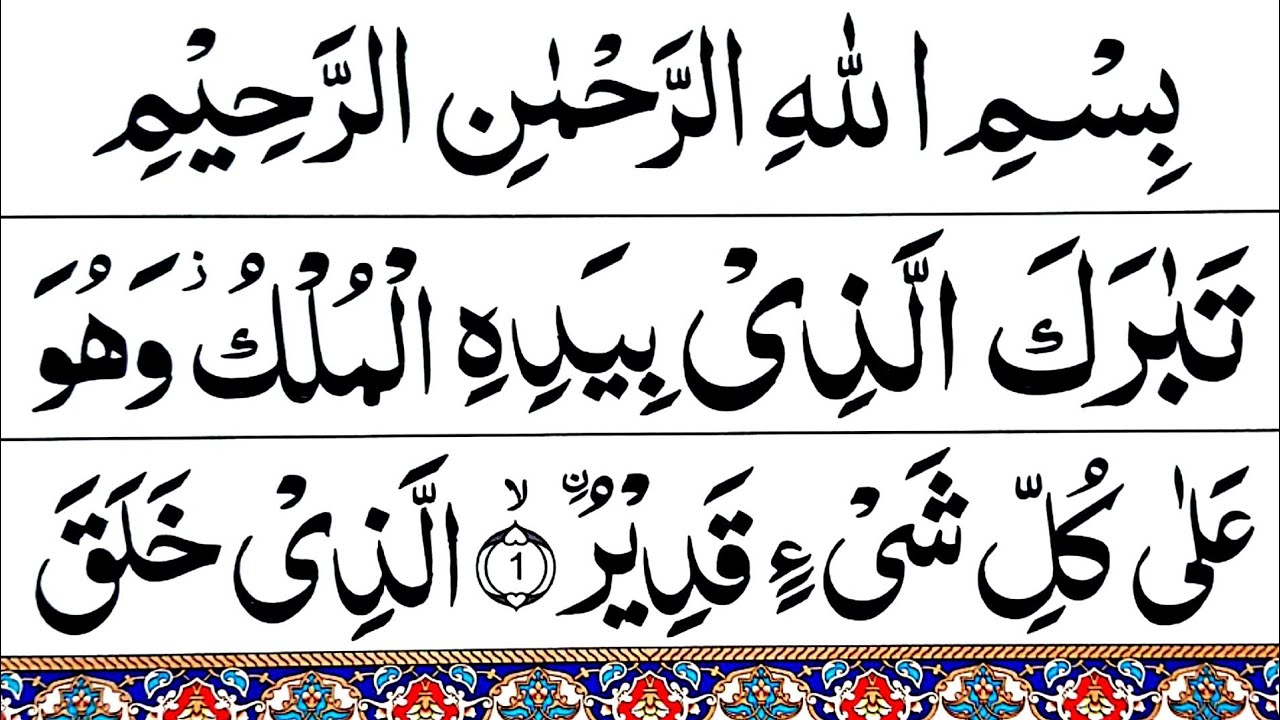 بِسْمِ اللّٰهِ الرَّحْمٰنِ الرَّحِيْمِ
تَبٰرَكَ الَّذِىْ بِيَدِهِ الْمُلْكُ ز وَهُوَ
عَلٰى كُلِّ شَىْءٍ قَدِيْرُ ۨ لا 1 الَّذِىْ خَلَقَ